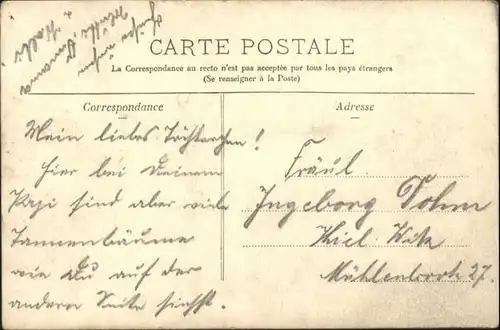 CARTE POSTALE
La Correspondance au recto n'est pas acceptée par tous les pays étrangers
(Se renseigner à la Poste)
Correspondance
Mein liebes Töchterchen!
hier bei Deinem
Papi sind aber viele
Tannenbäume
wie Du auf der
anderen Seite siehst.
Adresse
Fräul.
Ingeborg
Kiel
Mühlenbrook 27.